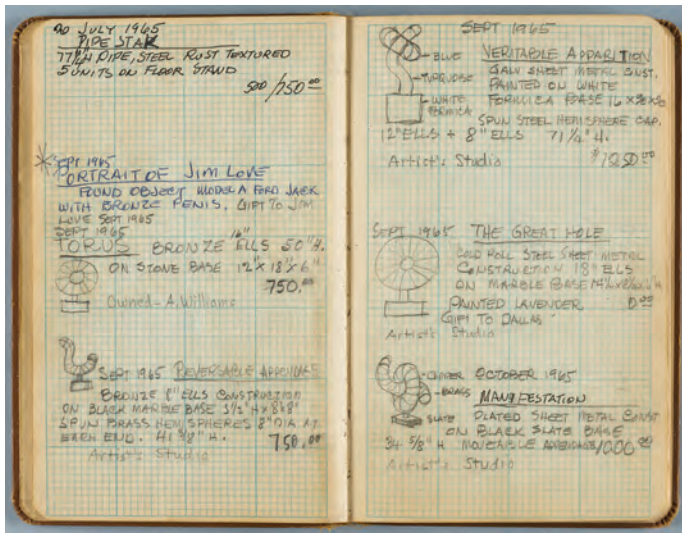 JULY 1965
PIPE STAR
77"H PIPE, STEEL RUST TEXTURED
5 UNITS ON FLOOR STAND
500/750 00
SEPT 1965
PORTRAIT OF JIM LOVE
FOUND OBJECT MODEL A FORD JACK
WITH BRONZE PENIS. GIFT TO JIM
LOVE SEPT 1965
SEPT 1965
TORUS BRONZE 16" ELLS 50"H.
ON STONE BASE 12"X 18"X 6"
750.00
Owned-A. Williams
SEPT 1965 REVERSABLE APPENDAGE
BRONZE 8" ELLS CONSTRUCTION
ON BLACK MARBLE BASE 3½"H X 8X8"
SPUN BRASS HEMISPHERES 8" DIA AT
EACH END. 41 H. 750.00
Artist's Studio
SEPT 1965
BLUE VERITABLE APPARITION
TURQUOISE GALV SHEET METAL CONST.
PAINTED ON WHITE
WHITE FORMICA FORMICA BASE 16
SPUN STEEL HEMISPHERE CAP.
12" ELLS + 8" ELLS 71½" H.
Artist's Studio $1250 00
SEPT 1965 THE GREAT HOLE
COLD ROLL STEEL SHEET METAL
CONSTRUCTION 18" ELLS
ON MARBLE BASE
PAINTED LAVENDER 0 00
GIFT TO DALLAS
Artist's Studio
COPPER OCTOBER 1965
BRASS MANIFESTATION
SLATE PLATED SHEET METAL CONST
ON BLACK SLATE BASE
34 5/8" H MOVEABLE APPENDAGE 1000 00
Artist's Studio